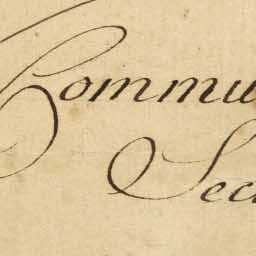 Commu
Sec